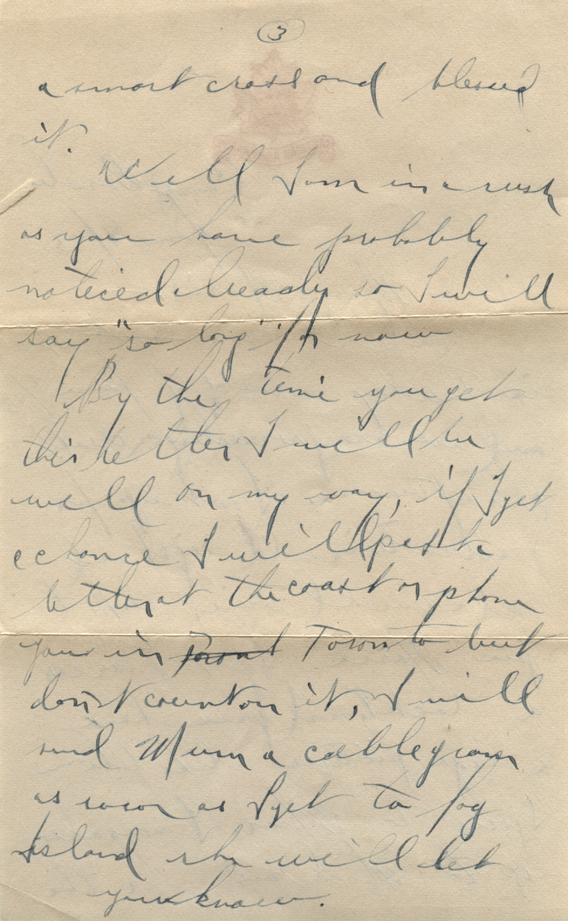 3
a smart cross and blessed
it.
Well I am in a rush
as you have probably
noticed already so I will
say "so long" for now
By the time you get
this letter I will be
well on my way, if I get
a chance I will post a
letter at the coast or phone
you in Toronto but
don't count on it, I will
send Mum a cablegram
as soon as I get to
Island she will let
you know.